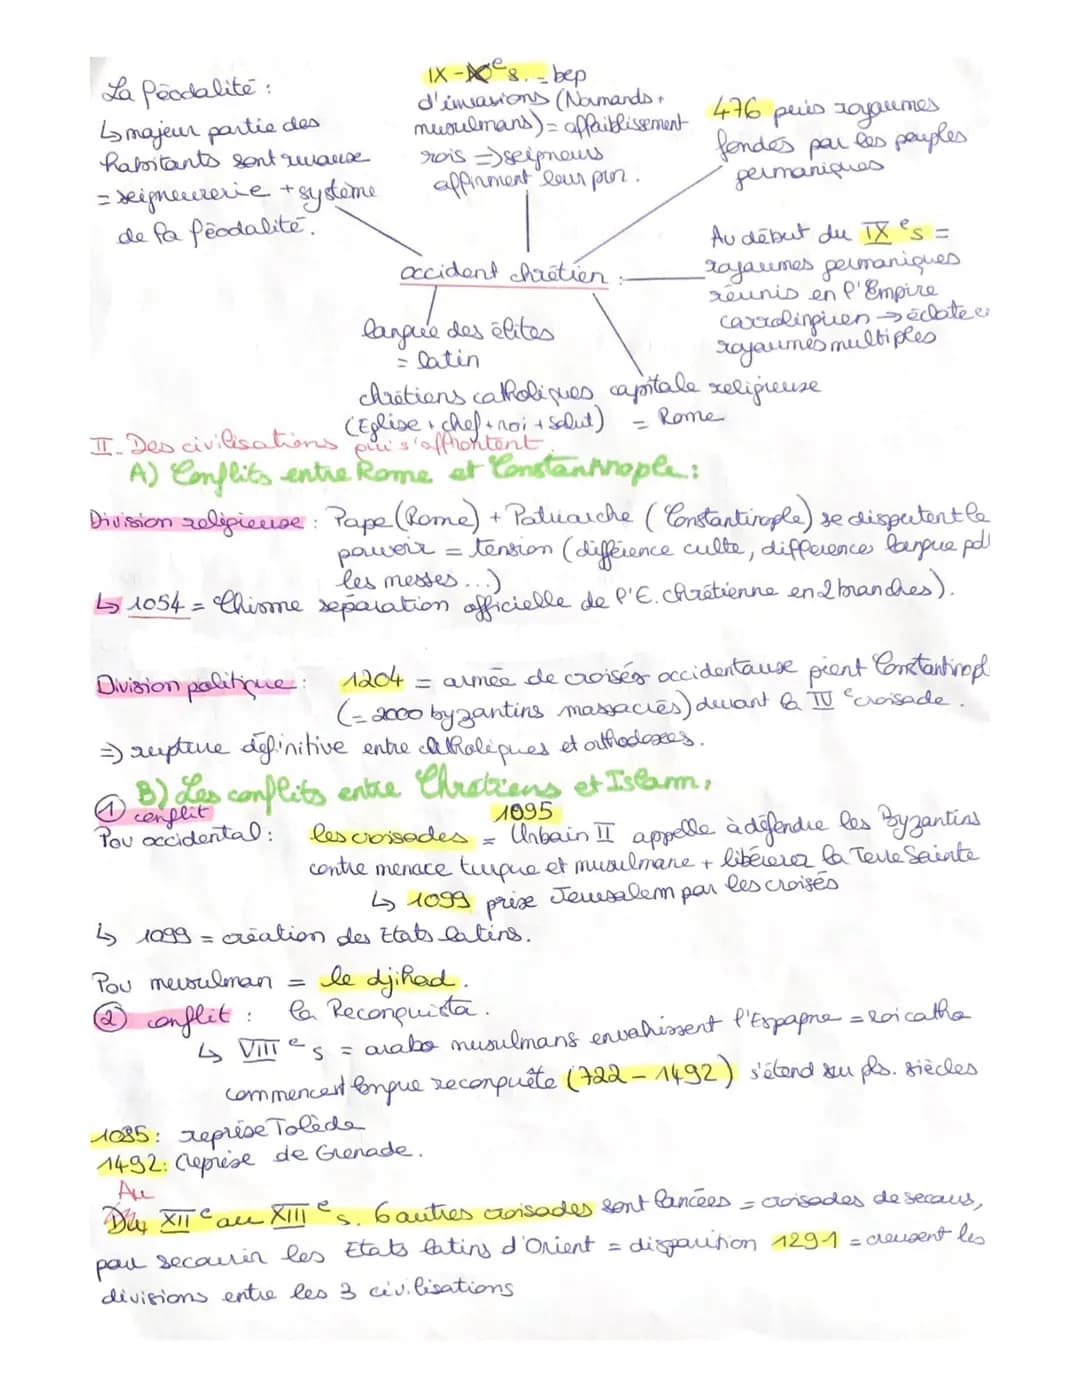 La féodalité :
↳ majeur partie des
habitants sont ruraux
= seigneurerie + système
de la féodalité.
IX - Xe s. = bcp
d'invasions (Normands +
musulmans) = affaiblissement
rois => seigneurs
affirment leur pvr.
476 puis royaumes
fondés par les peuples
germaniques
Au début du IXe s =
royaumes germaniques
réunis en l'Empire
carrolingien → éclate en
royaumes multiples
occident chrétien :
langue des élites
= latin
chrétiens catholiques
(Eglise + chef + roi + salut)
capitale religieuse
= Rome
II - Des civilisations qui s'affrontent
A) Conflits entre Rome et Constantinople :
Division religieuse : Pape (Rome) + Patriarche (Constantinople) se disputent le
pouvoir = tension (différence culte, difference langue pdt
les messes...)
↳ 1054 = Chisme séparation officielle de l'E. chrétienne en 2 branches).
Division politique : 1204 = armée de croisés occidentaux pient Constantinopl
(= 2000 byzantins massacrés) durant la IVe croisade.
=> rupture définitive entre catholiques et orthodoxes.
B) Les conflits entre Chrétiens et Islam :
① conflit
Pov occidental : les croisades = 1095 Urbain II appelle à défendre les Byzantins
contre menace turque et musulmane + libérerer la Terre Sainte
↳ 1099 prise Jerusalem par les croisés
↳ 1099 = création des Etats latins.
Pov musulman = le djihad.
② conflit : la Reconquista.
↳ VIIIe s = arabo musulmans envahissent l'Espagne = roi catho
commencent longue reconquête (722 - 1492) s'étend sur pls. siècles
1085 : reprise Tolède
1492 : reprise de Grenade.
Au
Du XIIe au XIIIe s. 6 autres croisades sont lancées = croisades de secours,
pour secourir les Etats latins d'Orient = disparition 1291 = creusent les
divisions entre les 3 civilisations